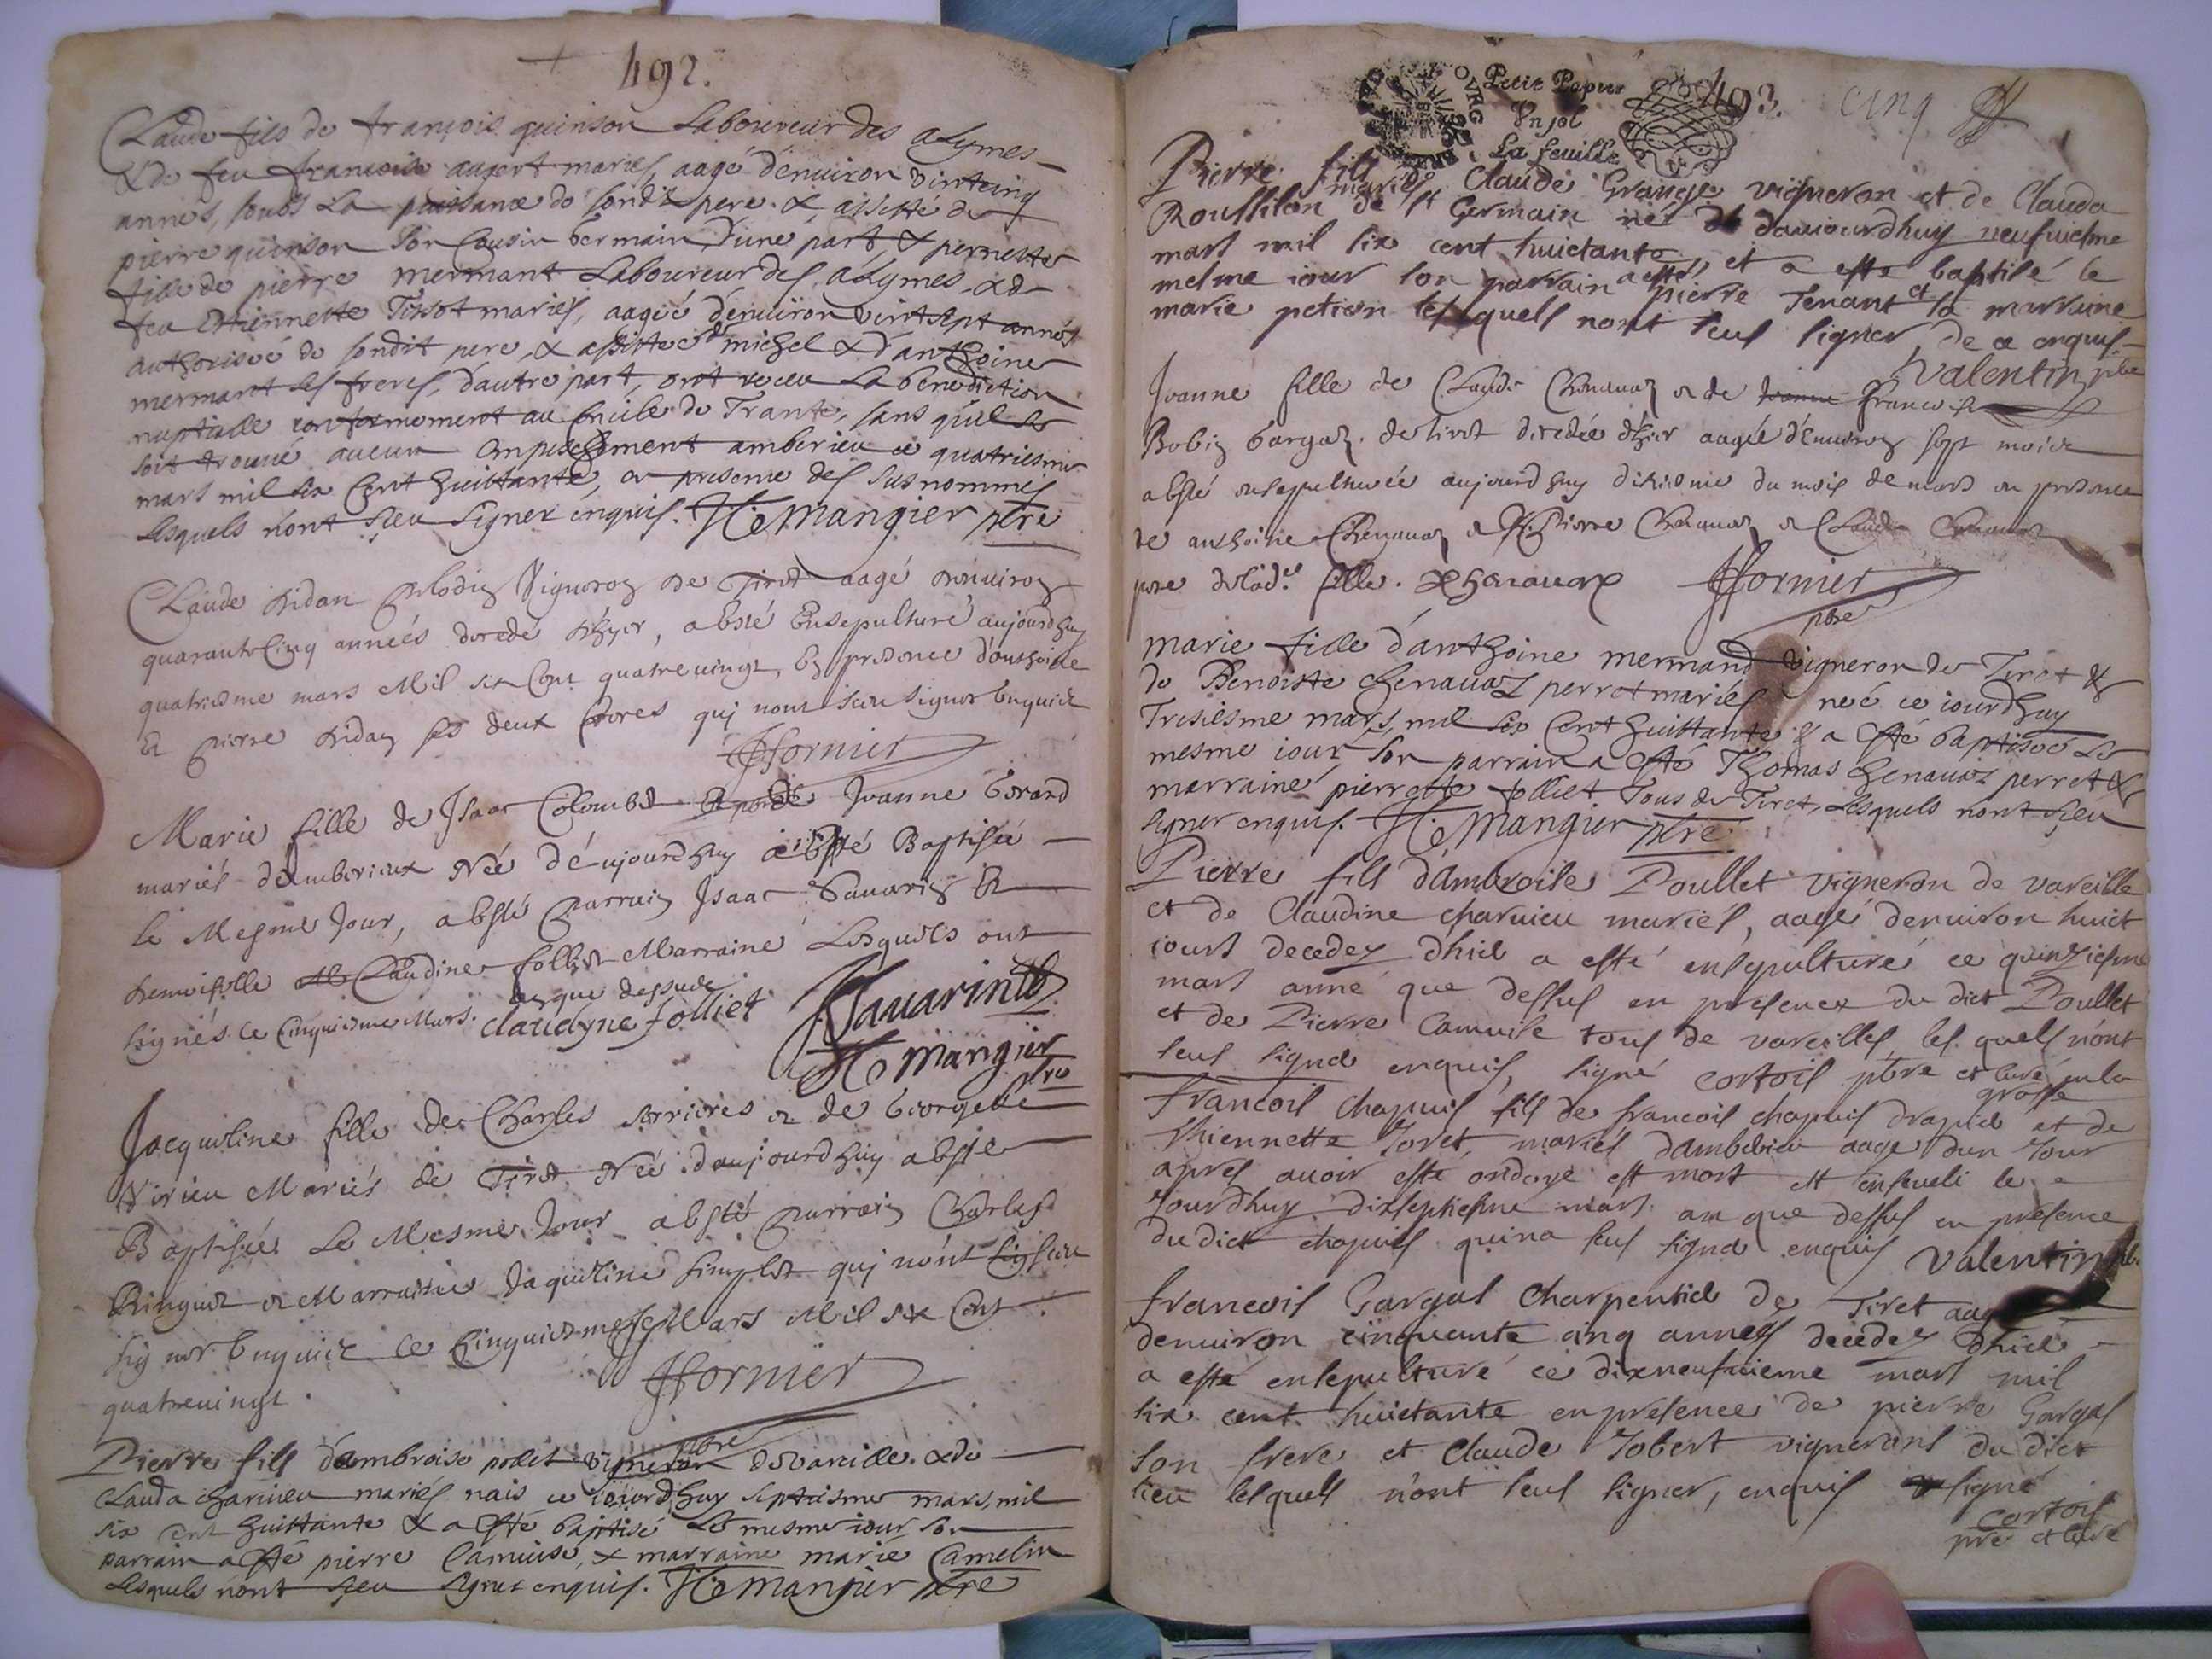 492.
Claude fils de françois quinson Laboureur des alymes
& de feu françoise aupert mariés, aagé d'enuiron vintcinq
années, soubs La puissance de sondit pere. & assisté de
pierre quinson son Cousin Germain, d'une part, & pernette
fille de pierre mermant Laboureur des alymes, & de
feu Estiennette Tissot mariés, aagée d'enuiron vintsept années
authorisée de sondit pere, & assistée de michel & d'anthoine
mermant ses freres, d'autre part, ont receu La benediction
nuptialle conformement au Concile de Trante, sans qu'il se
soit trouué aucun empeschement amberieu ce quatriesme
mars mil six Cent huittante, en presence des susnommés
Lesquels n'ont sceu signer enquis. H: Mangier ptre
Claude didan Vigneron de Tiret aagé denuiron
quarante Cinq années decedé dhyer, a esté Ensepulturé aujourdhuy
quatriesme mars Mil six Cent quatreuingt, En presence d'anthoine
Et Pierre didan ses deux freres qui nont sceu signer Enquis
fornier
Marie fille de Isaac Colombet Joanne Gerard
mariés d'amberieux Née dé aujourdhuy a Esté Baptisée
le Mesme Jour, a esté Parrain Isaac Sauarin Et
demoiselle Claudine folliet Marraine Lesquels ont
signés ce Cinquiesme Mars. an que dessus
claudyne folliet Sauarin
H: Mangier ptre
Jacqueline fille de Charles Serrieres et de Georgette
Virieu Mariés de Tiret Née daujourdhuy a este
Baptisée Le Mesme Jour a esté Parrain Charles
Ringuet et Marraine Jaqueline simplet qui nont sceu
signer Enquis ce Cinquiesme Mars Mil six Cent
quatreuingt.
fornier
pbre
Pierre fils d'ambroise polet vigneron de Vareille. & de
Clauda Charuieu mariés nais ce iourdhuy septiesme mars, mil
six cent huittante & a esté baptisé Le mesme iour, son
parrain a esté pierre Camuise, & marraine marie Camelin
Lesquels n'ont sceu signer enquis. H: Mangier ptre
Petit Papier
Vn sol
La feuille
493.
cinq
Pierre fils de Claude Grange vigneron et de Clauda
Roussilon mariés de st Germain né daujourdhuy neufuiesme
mars mil six cent huictante, et a esté baptisé le
mesme iour son parrain a esté pierre Tenant et sa marraine
marie petion les quels nont seus signer, de ce enquis
Valentin pbre
Joanne fille de Claude Chenauaz et de Joanne francoise
Bobin Gargaz. de tiret decedée dhier aagée d'enuiron sept mois
a esté ensepulturée aujourdhuy dixiesme du mois de mars en presence
de anthoine Chenauaz et Pierre Chenauaz et Claude Chenauaz
pere de lade. fille. Chenauaz fornier
pbre
marie fille d'anthoine mermand Vigneron de Tiret &
de Benoiste Chenauaz perret mariés née ce iourdhuy
Tresiesme mars, mil six Cent huittante & a esté baptisée Le
mesme iour son parrain a esté Thomas Chenauaz perret &
marraine pierrette folliet Tous de Tiret, Lesquels nont sceu
signer enquis. H: Mangier ptre
Pierre fils d'Ambroise Poullet vigneron de vareille
et de Claudine charuieu mariés, aagé denuiron huict
iours decedez dhier a esté ensepulturé ce quinziesme
mars anné que dessus en presence du dict Poullet
et de Pierre Camuise tous de vareilles, les quels n'ont
seus signer enquis, signé cortois pbre et curé
francois Chapuis fils de francois chapuis drapier et de
Thiennette Joret, mariés dambérieu aagé dun Jour
apres auoir esté ondoyé est mort et enseueli le
Jourdhuy dixseptiesme mars an que dessus en presence
du dict chapuis qui na seus signer enquis Valentin pbr
francois Gargas Charpentier de Tiret aagé
denuiron cinquante cinq annees decedez dhier
a esté ensepulturé ce dixneufuieme mars mil
six cent huictante en presence de pierre Gargas
son frere et Claude Jobert vignerons du dict
lieu lesquels n'ont seus signer, enquis signé
cortois
pre et curé